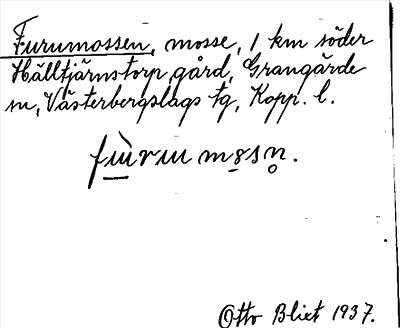 Furumossen, mosse, 1 km söder
Hälltjärnstorp, gård, Grangärde
sn, Västerbergslags tg, Kopp. l.
fùrum mosn.
Otto Blixt 1937.